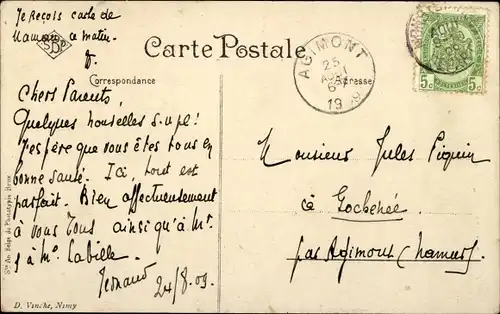 Je Reçois carte de
Maman ce matin
F.
SBP
Carte Postale
Correspondance
Adresse
AGIMONT
25
AOUT
19 09
5c 5c
Chers Parents,
Quelques nouvelles S.V.P!
J'espère que vous êtes tous en
bonne santé. Ici, tout est
parfait. Bien affectueusement
à vous Tous ainsi qu'à Mr
& à Me Labille.
Fernand
24/8.09.
Monsieur Jules Piquin
à Gochenée
par Agimont (Namur)
Sté An. Belge de Phototypie Brux.
D. Vinche, Nimy